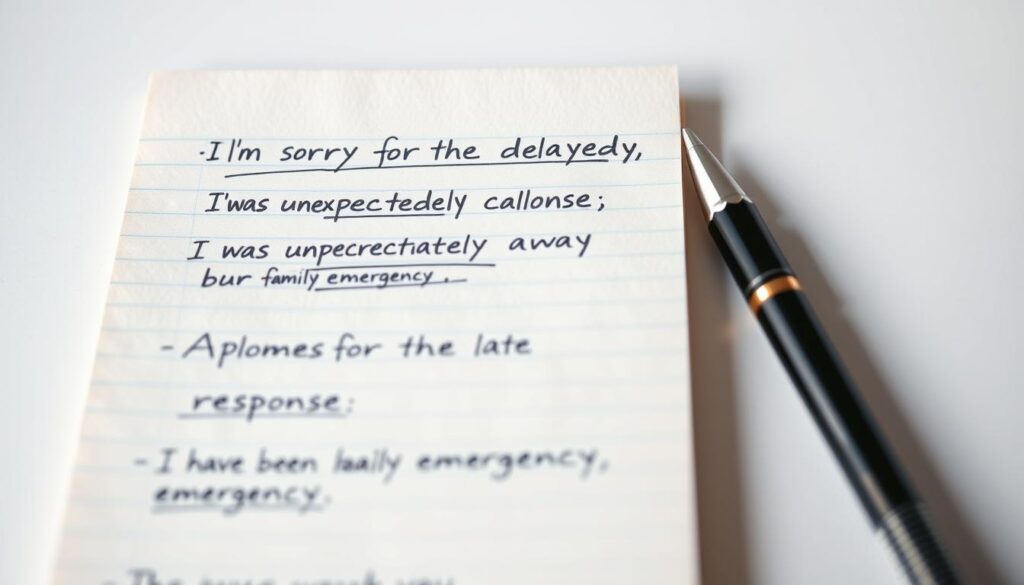 ·I I'm sorry for the delayedy,
I'was unexpectedely callonse;
I was unpecrectiately away
bur family emergency.
- Aplomes for the late
response:
- I have been laaily emergency,
emergency.
- The